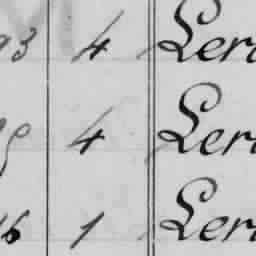 93 4 Ler
4 Ler
16 1 Ler